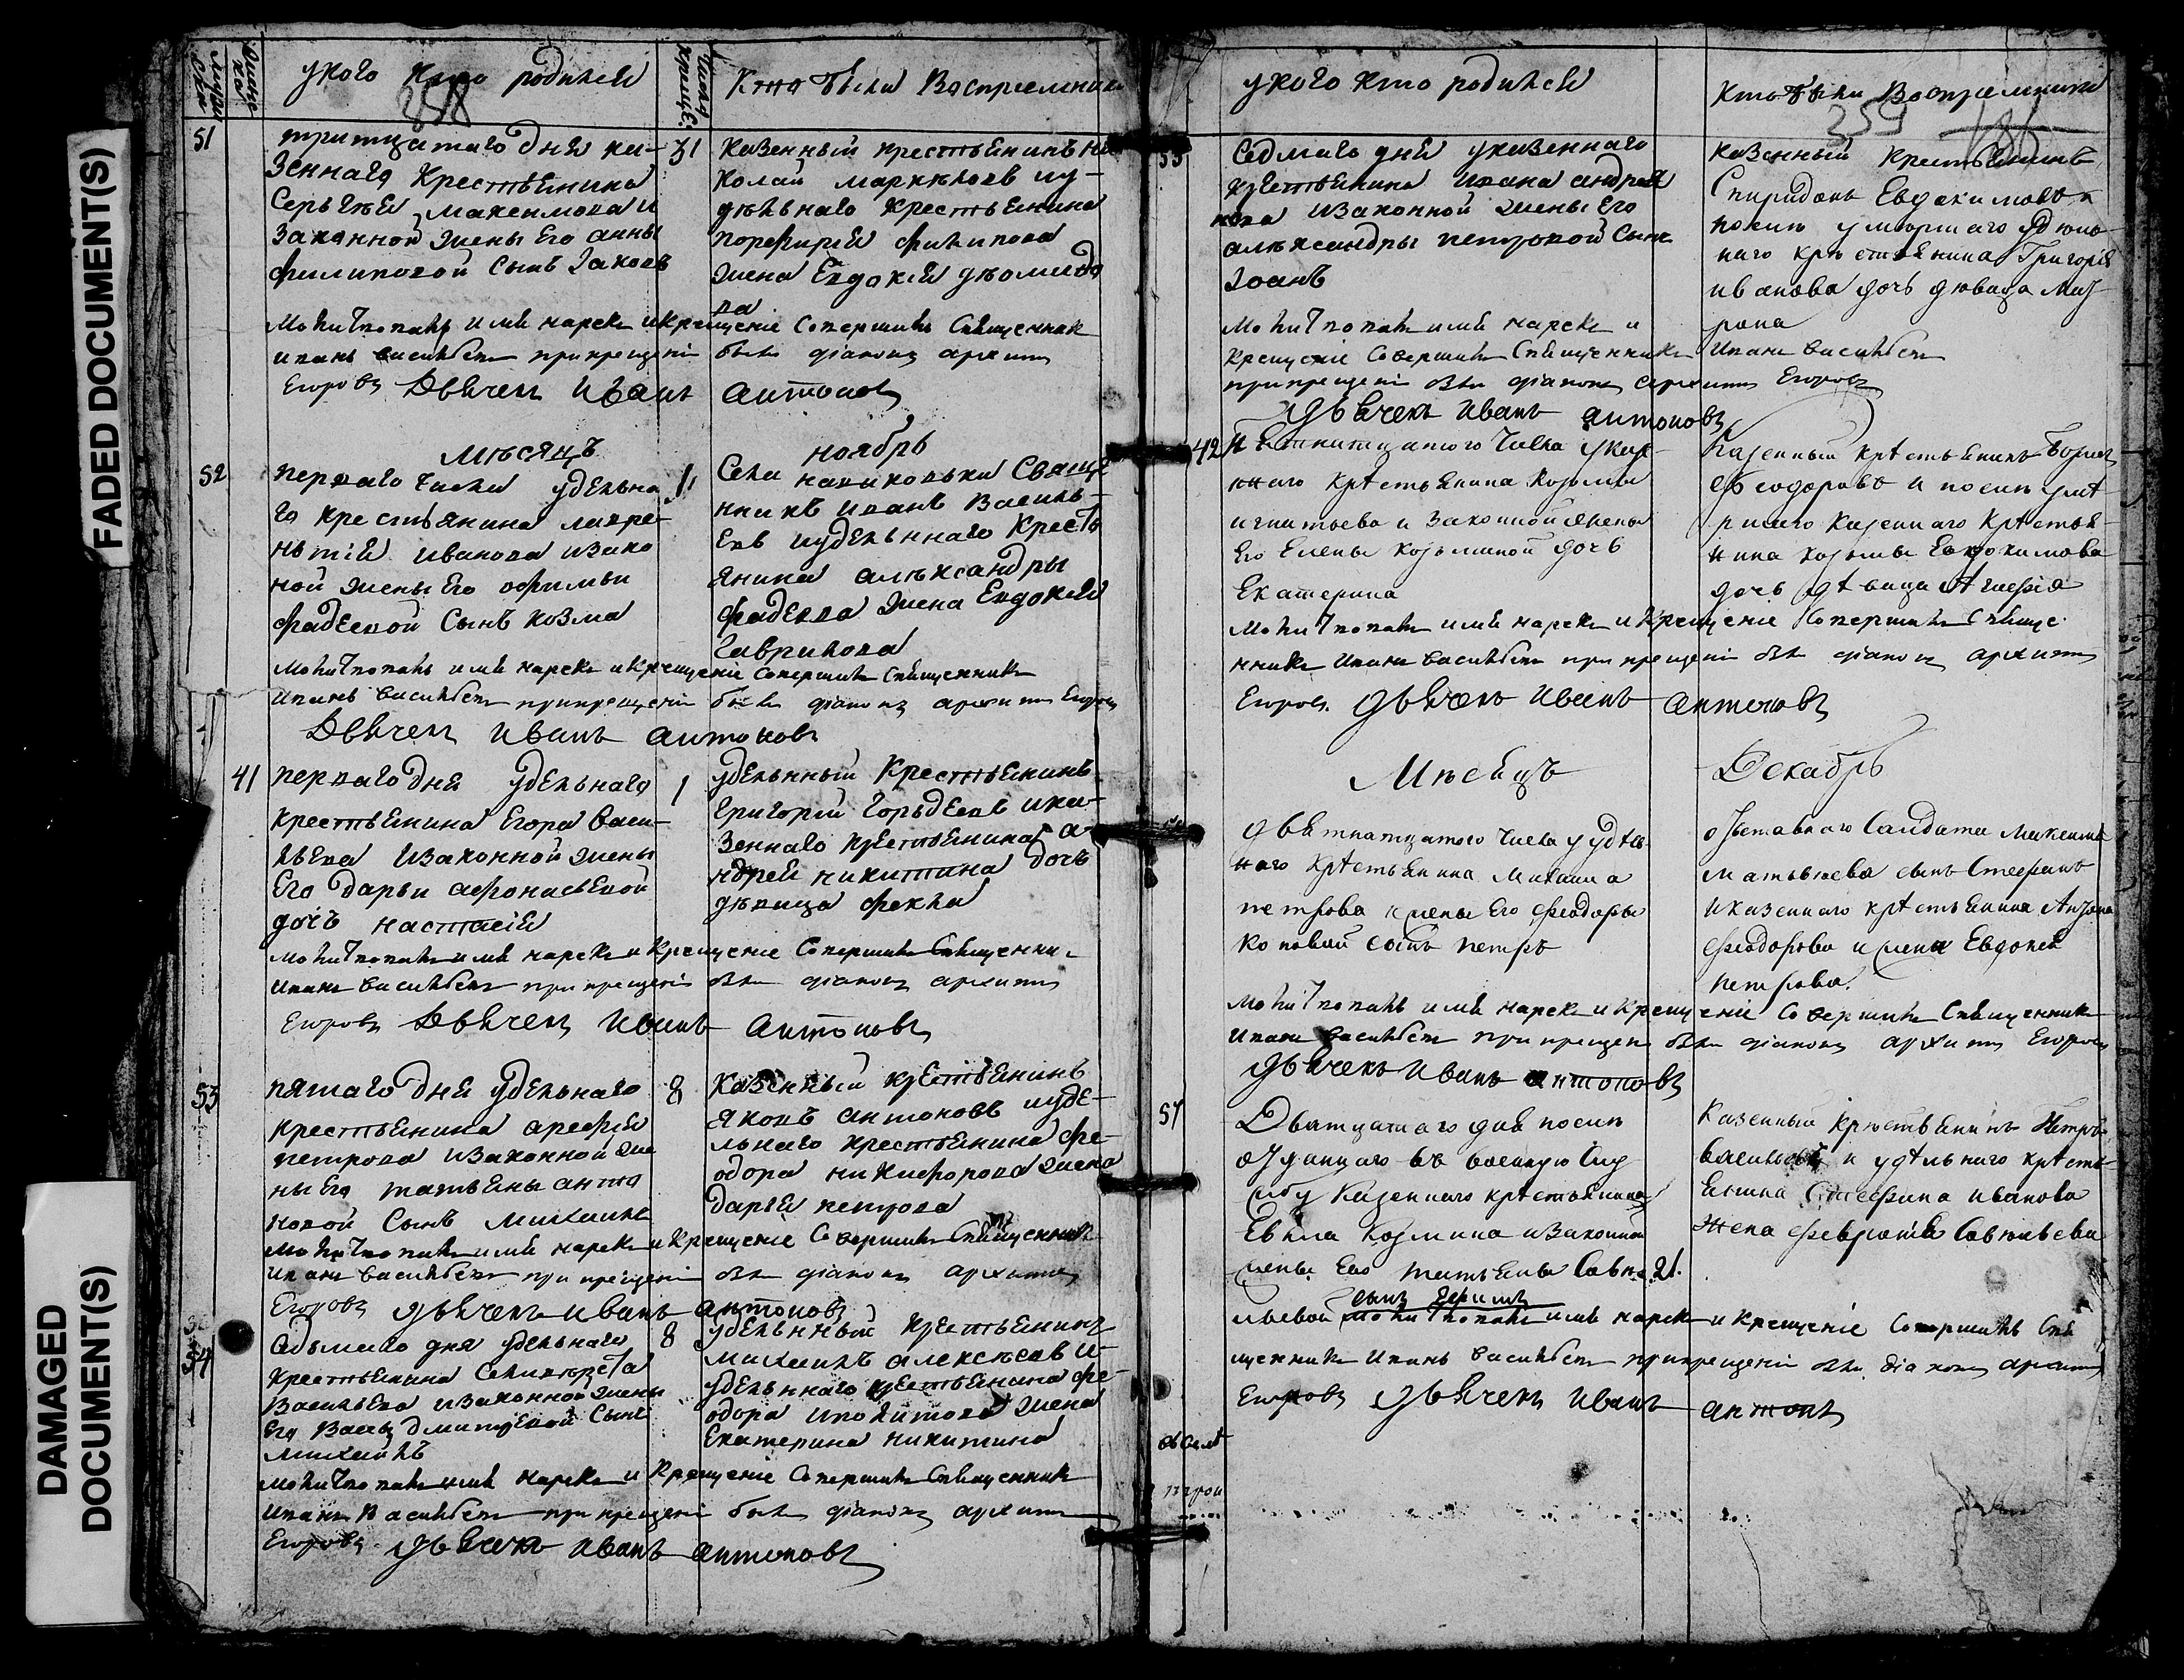 FADED DOCUMENT(S)
DAMAGED
DOCUMENT(S)
у кого кто родился
358
Кто были Восприемники
51
тритцатаго дня ка-
зеннаго крестьянина
Сергѣя максимова и
законной жены Его анны
филиповой сынъ Іаковъ
31
казенный крестьянинъ ни
колай маркѣловъ иу-
дѣльнаго крестьянина
порфирія филипова
жена Евдокія дѣомидо
ва
молитвовалъ имя нарекъ и крещеніе совершилъ священникъ
иванъ васильевъ при крещеніи былъ діаконъ архипъ
Егоровъ Дьячекъ Иванъ антоновъ
мѣсяцъ ноябрь
52
перваго числа удѣльна
го крестьянина лавре-
нтія иванова изако
ной жены Его офимьи
фадѣевой сынъ козма
1
села николыки Свяще
нникъ иванъ Василь-
евъ иудѣльннаго кресть
янина александры
фадѣева жена Евдокія
гаврилова
молитвовалъ имя нарекъ и крещеніе совершилъ священникъ
иванъ васильевъ при крещеніи былъ діаконъ архипъ Егоровъ
Дьячекъ Иванъ антоновъ
41
перваго дня удѣльнаго
крестьянина Егора васи-
льева изаконной жены
Его дарьи афонасьевой
дочь настасія
1
удѣльнный крестьянинъ
григорій гордѣевъ ика-
зеннаго крестьянина а-
ндрея никитина дочь
дѣвица фекла
молитвовалъ имя нарекъ и крещеніе совершилъ священникъ
иванъ васильевъ при крещеніи былъ діаконъ архипъ
Егоровъ Дьячекъ Иванъ антоновъ
53
пятаго дня удѣльнаго
крестьянина арефія
петрова изаконной же
ны Его татьяны анто
новой сынъ михаилъ
8
казенный крестьянинъ
яковъ антоновъ иудѣ-
льнаго крестьянина фе-
одора никифорова жена
дарья петрова
молитвовалъ имя нарекъ и крещеніе совершилъ священникъ
иванъ васильевъ при крещеніи былъ діаконъ архипъ
Егоровъ дьячекъ иванъ антоновъ
54
седьмаго дня удѣльнаго
крестьянина
васильева изаконной жены
Его дмитрѣвой сынъ
михаилъ
8
удѣльнный крестьянинъ
михаилъ алексѣевъ и-
удѣльннаго крестьянина фе-
одора иполитова жена
Екатерина никитина
молитвовалъ имя нарекъ и крещеніе совершилъ священникъ
иванъ васильевъ при крещеніи былъ діаконъ архипъ
Егоровъ дьячекъ иванъ антоновъ
у кого кто родился
Кто были Восприемники
359
55
седмаго дня указеннаго
крестьянина ивана андрея
нова изаконной жены Его
александры петровой сынъ
Іоанъ
казенный крестьянинъ
Спиридонъ Евдокимовъ и
покин умершаго удѣль-
наго крѣстьянина Григорія
иванова дочь дѣвица мат
рона
молитвовалъ имя нарекъ и
крещеніе совершилъ священникъ иванъ васильевъ
при крещеніи былъ діаконъ архипъ Егоровъ
дьячекъ иванъ антоновъ
42
пятнитцатого числа у каз-
ннаго крестьянина козмы
игнатьева и законной жены
Его Елены козминой дочь
Екатерина
казенный крестьянинъ Борисъ
Феодоровъ и посли уме-
ршаго казеннаго крестья-
нина козмы Евдокимова
дочь девица Агафія
молитвовалъ имя нарекъ и крещеніе совершилъ священ
нникъ иванъ васильевъ при крещеніи былъ діаконъ архипъ
Егоровъ дьячекъ Иванъ антоновъ
Мѣсяцъ Декабрь
двятнатцатого числа у удель
наго крестьянина Михаила
петрова жены Его феодоры
повой сынъ петръ
отставнаго Салдата Максима
матвѣева сынъ Стефанъ
и казеннаго крестьянина Антона
феодорова жена Евдокея
петрова.
молитвовалъ имя нарекъ и крещеніе совершилъ священникъ
иванъ васильевъ при крещеніи былъ діаконъ архипъ Егоровъ
дьячекъ иванъ антоновъ
57
Двятцатаго дня посли
отданнаго въ военную Слу
жбу казеннаго крестьянина
козмина изаконной
жены Его татьяны Саве
21.
льевой
казенный крѣстьянинъ Петръ
васильевъ и удельнаго кресть-
янина Стефана иванова
жена феврония Савельева
молитвовалъ имя нарекъ и крещеніе совершилъ свя
щенникъ иванъ васильевъ при крещеніи былъ діаконъ архипъ
Егоровъ дьячекъ иванъ антоновъ